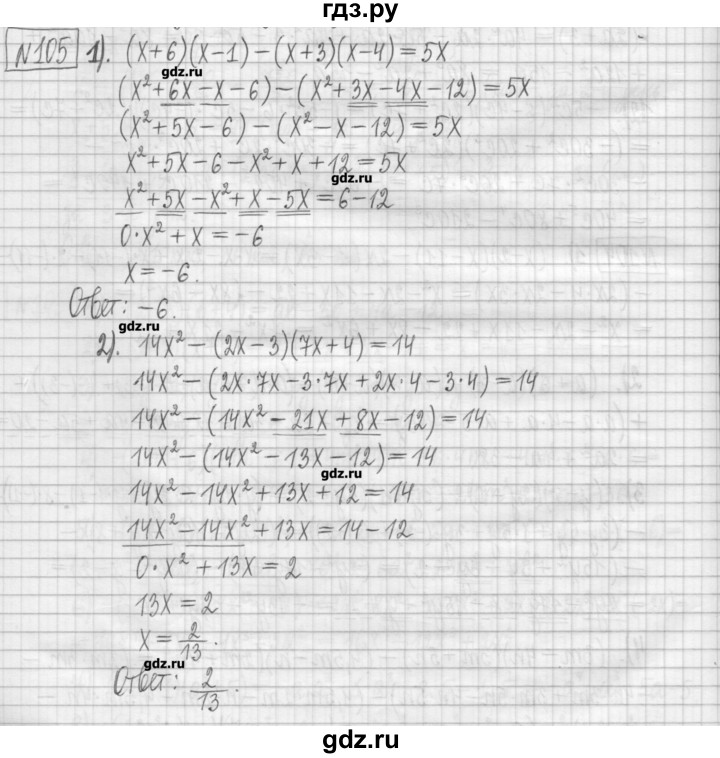 гдз.ру
№105 1). (x+6)(x-1)-(x+3)(x-4)=5x
gdz.ru
(x²+6x-x-6)-(x²+3x-4x-12)=5x
(x²+5x-6)-(x²-x-12)=5x
x²+5x-6-x²+x+12=5x
gdz.ru
x²+5x-x²+x-5x=6-12
0·x²+x=-6
x=-6.
Ответ: -6.
gdz.ru
2). 14x²-(2x-3)(7x+4)=14
14x²-(2x·7x-3·7x+2x·4-3·4)=14
14x²-(14x²-21x+8x-12)=14
14x²-(14x²-13x-12)=14
gdz.ru
14x²-14x²+13x+12=14
14x²-14x²+13x=14-12
0·x²+13x=2
13x=2
x=2/13.
gdz.ru
Ответ: 2/13.
gdz.ru